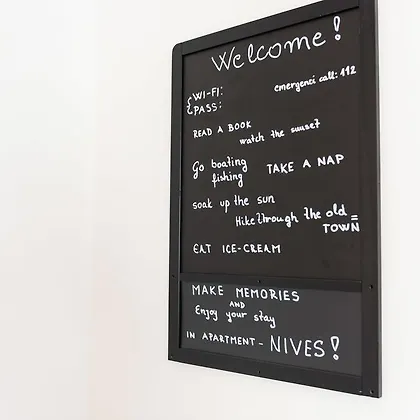 Welcome!
WI-FI:
emergenci call: 112
PASS:
READ A BOOK
watch the sunset
Go boating
TAKE A NAP
fishing
soak up the sun
Hike through the old =
TOWN
EAT ICE-CREAM
MAKE MEMORIES
AND
Enjoy your stay
IN APARTMENT - NIVES!